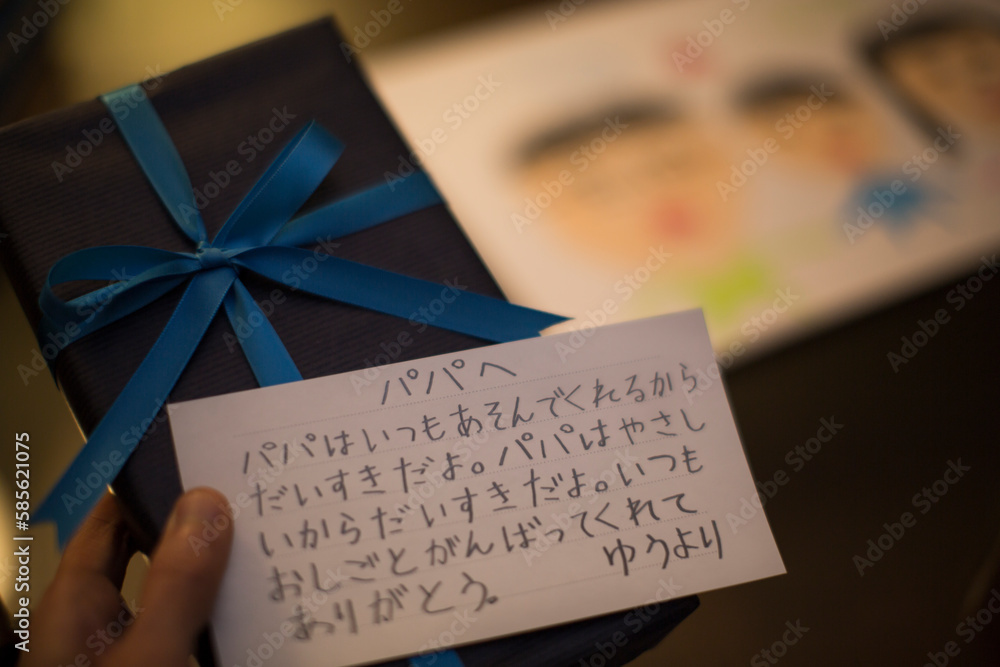 パパへ
パパはいつもあそんでくれるから
だいすきだよ。パパはやさし
いからだいすきだよ。いつも
おしごとがんばってくれて
ありがとう。 ゆうより
Adobe Stock | #585621075